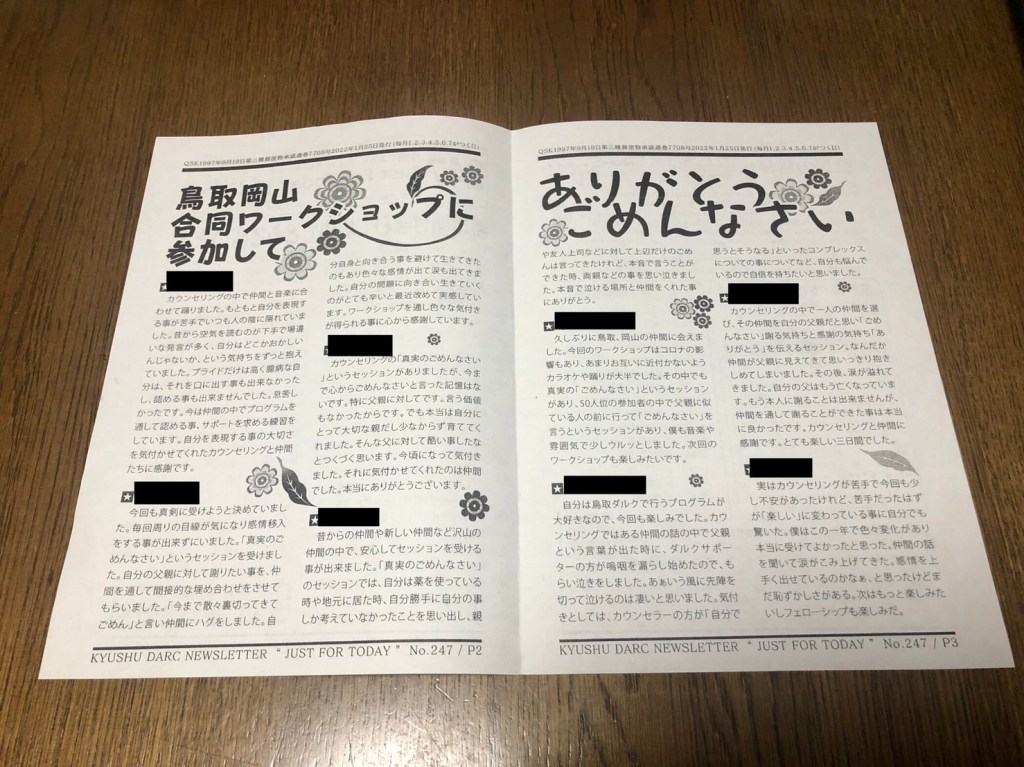 QSK1997年9月19日第三種郵便物承認通巻7708号2022年1月25日発行(毎月1.2.3.4.5.6.7がつく日)
鳥取岡山
合同ワークショップに
参加して
カウンセリングの中で仲間と音楽に合
わせて踊りました。もともと自分を表現す
る事が苦手でいつも人の陰に隠れていま
した。昔から空気を読むのが下手で場違
いな発言が多く、自分はどこかおかしい
んじゃないか、という気持ちをずっと抱え
ていました。プライドだけは高く臆病な自
分は、それを口に出す事も出来なかった
し、認める事も出来ませんでした。息苦し
かったです。今は仲間の中でプログラムを
通して認める事、サポートを求める練習を
しています。自分を表現する事の大切さ
を気付かせてくれたカウンセリングと仲間
たちに感謝です。
今回も真剣に受けようと決めていまし
た。毎回周りの目線が気になり感情移入
をする事が出来ずにいました。「真実のご
めんなさい」というセッションを受けまし
た。自分の父親に対して謝りたい事を、仲
間を通して間接的な埋め合わせをさせて
もらいました。「今まで散々裏切ってきて
ごめん」と言い仲間にハグをしました。自
分自身と向き合う事を避けて生きてきた
のもあり色々な感情が出て涙も出てきま
した。自分の問題に向き合い生きていく
のがとても辛いと最近改めて実感してい
ます。ワークショップを通し色々な気付き
が得られる事に心から感謝しています。
カウンセリングの「真実のごめんなさい」
というセッションがありましたが、今ま
で心からごめんなさいと言った記憶はな
いです。特に父親に対してです。言う価値
もなかったからです。でも本当は自分に
とって大切な親だし少なからず育ててく
れました。そんな父に対して酷い事したな
とつくづく思います。今頃になって気付き
ました。それに気付かせてくれたのは仲間
でした。本当にありがとうございます。
昔からの仲間や新しい仲間など沢山の
仲間の中で、安心してセッションを受ける
事が出来ました。「真実のごめんなさい」
のセッションでは、自分は薬を使っている
時や地元に居た時、自分勝手に自分の事
しか考えていなかったことを思い出し、親
KYUSHU DARC NEWSLETTER “ JUST FOR TODAY ” No.247 / P2
QSK1997年9月19日第三種郵便物承認通巻7708号2022年1月25日発行(毎月1.2.3.4.5.6.7がつく日)
ありがとう
ごめんなさい
や友人上司などに対して上辺だけのごめ
んは言ってきたけれど、本音で言うことが
できた時、両親などの事を思い泣きまし
た。本音で泣ける場所と仲間をくれた事
にありがとう。
久しぶりに鳥取、岡山の仲間に会えま
した。今回のワークショップはコロナの影
響もあり、あまりお互いに近付かないよう
カラオケや踊りが大半でした。その中でも
真実の「ごめんなさい」というセッション
があり、50人位の参加者の中で父親に似
ている人の前に行って「ごめんなさい」を
言うというセッションがあり、僕も音楽や
雰囲気で少しウルッとしました。次回の
ワークショップも楽しみたいです。
自分は鳥取ダルクで行うプログラムが
大好きなので、今回も楽しみでした。カウ
ンセリングではある仲間の話の中で父親
という言葉が出た時に、ダルクサポー
ターの方が嗚咽を漏らし始めたので、も
らい泣きをしました。あぁいう風に先陣を
切って泣けるのは凄いと思いました。気付
きとしては、カウンセラーの方が「自分で
思うとそうなる」といったコンプレックス
についての事についてなど、自分も悩んで
いるので自信を持ちたいと思いました。
カウンセリングの中で一人の仲間を選
び、その仲間を自分の父親だと思い「ごめ
んなさい」謝る気持ちと感謝の気持ち「あ
りがとう」を伝えるセッション。なんだか
仲間が父親に見えてきて思いっきり抱き
しめてしまいました。その後、涙が溢れて
きました。自分の父はもう亡くなっていま
す。もう本人に謝ることは出来ませんが、
仲間を通して謝ることができた事は本当
に良かったです。カウンセリングと仲間に
感謝です。とても楽しい三日間でした。
実はカウンセリングが苦手で今回も少
し不安があったけれど、苦手だったはず
が「楽しい」に変わっている事に自分でも
驚いた。僕はこの一年で色々変化があり
本当に受けてよかったと思った。仲間の話
を聞いて涙がこみ上げてきた。感情を上
手く出せているのかなぁ、と思ったけどま
だ恥ずかしさがある。次はもっと楽しみた
いしフェローシップも楽しみだ。
KYUSHU DARC NEWSLETTER “ JUST FOR TODAY ” No.247 / P3